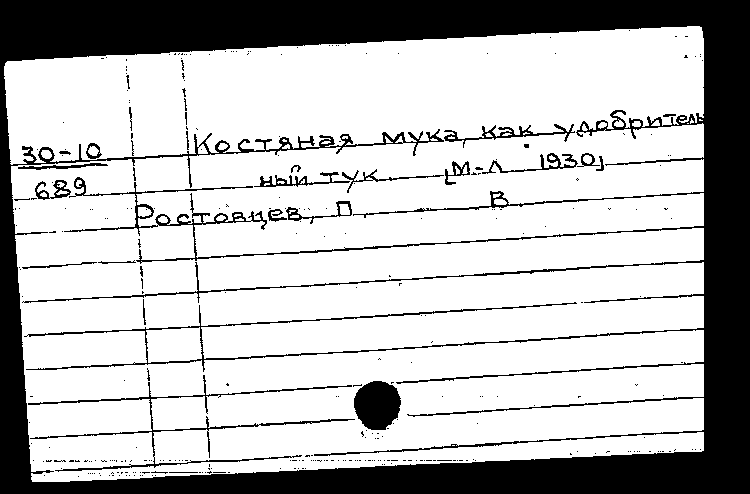 30-10 Костяная мука, как удобритель
689 ный тук. [М-Л 1930]
Ростовцев, П. В.